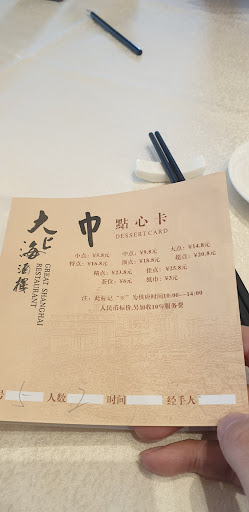 大上海酒樓
GREAT SHANGHAI
RESTAURANT
巾
點心卡
DESSERT CARD
小点：¥5.8元 中点：¥9.8元 大点：¥14.8元
特点：¥16.8元 顶点：¥18.8元 超点：¥20.8元
精点：¥23.8元 佳点：¥25.8元
茶位：¥6元 纸巾：¥3元
注：此标记“※”为供应时间10:00—14:00
人民币标价,另加收10%服务费
号 5 人数 2 时间 经手人